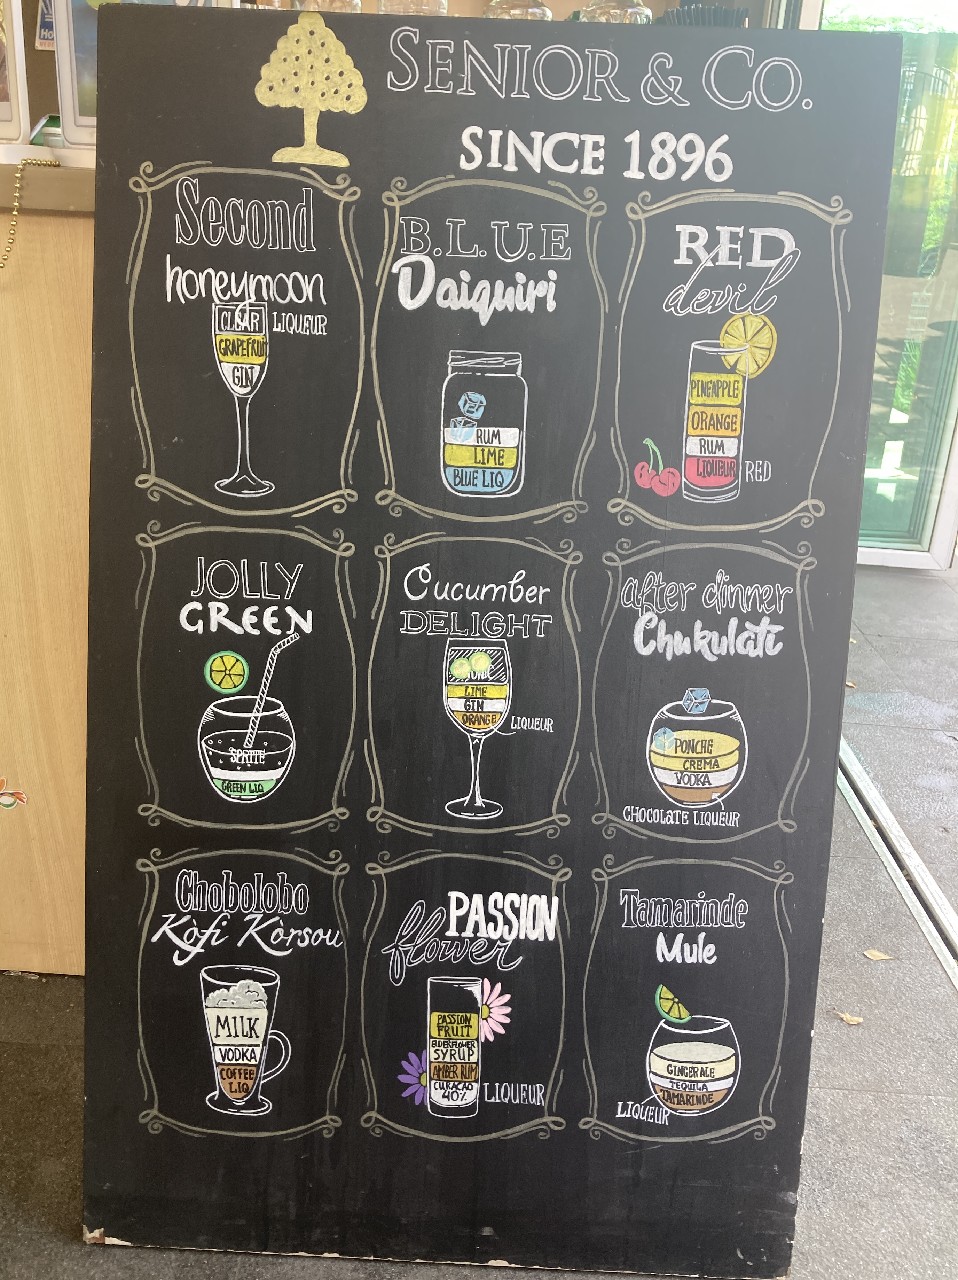 SENIOR & CO.
SINCE 1896
Second
honeymoon
CLEAR LIQUEUR
GRAPEFRUIT
GIN
B.L.U.E
Daiquiri
RUM
LIME
BLUE LIQ
RED
devil
PINEAPPLE
ORANGE
RUM
LIQUEUR RED
JOLLY
GREEN
SPRITE
GREEN LIQ
Cucumber
DELIGHT
TONIC
LIME
GIN
ORANGE
LIQUEUR
after dinner
Chukulati
PONCHE
CREMA
VODKA
CHOCOLATE LIQUEUR
Chobolobo
Kòfi Kòrsou
MILK
VODKA
COFFEE
LIQ
PASSION
flower
PASSION
FRUIT
ELDERFLOWER
SYRUP
AMBER RUM
CURAÇAO
40% LIQUEUR
Tamarinde
Mule
GINGER ALE
TEQUILA
TAMARINDE
LIQUEUR